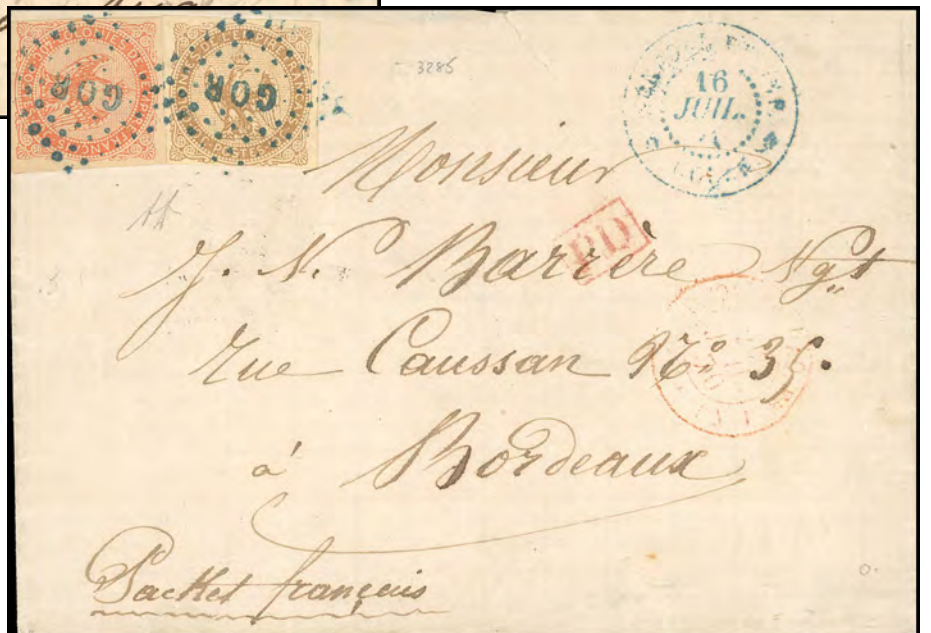 GOR GOR
3285
16
JUIL.
Monsieur
PD
J. N. Barrère Ngt
rue Caussan No. 35.
à Bordeaux
Packet français